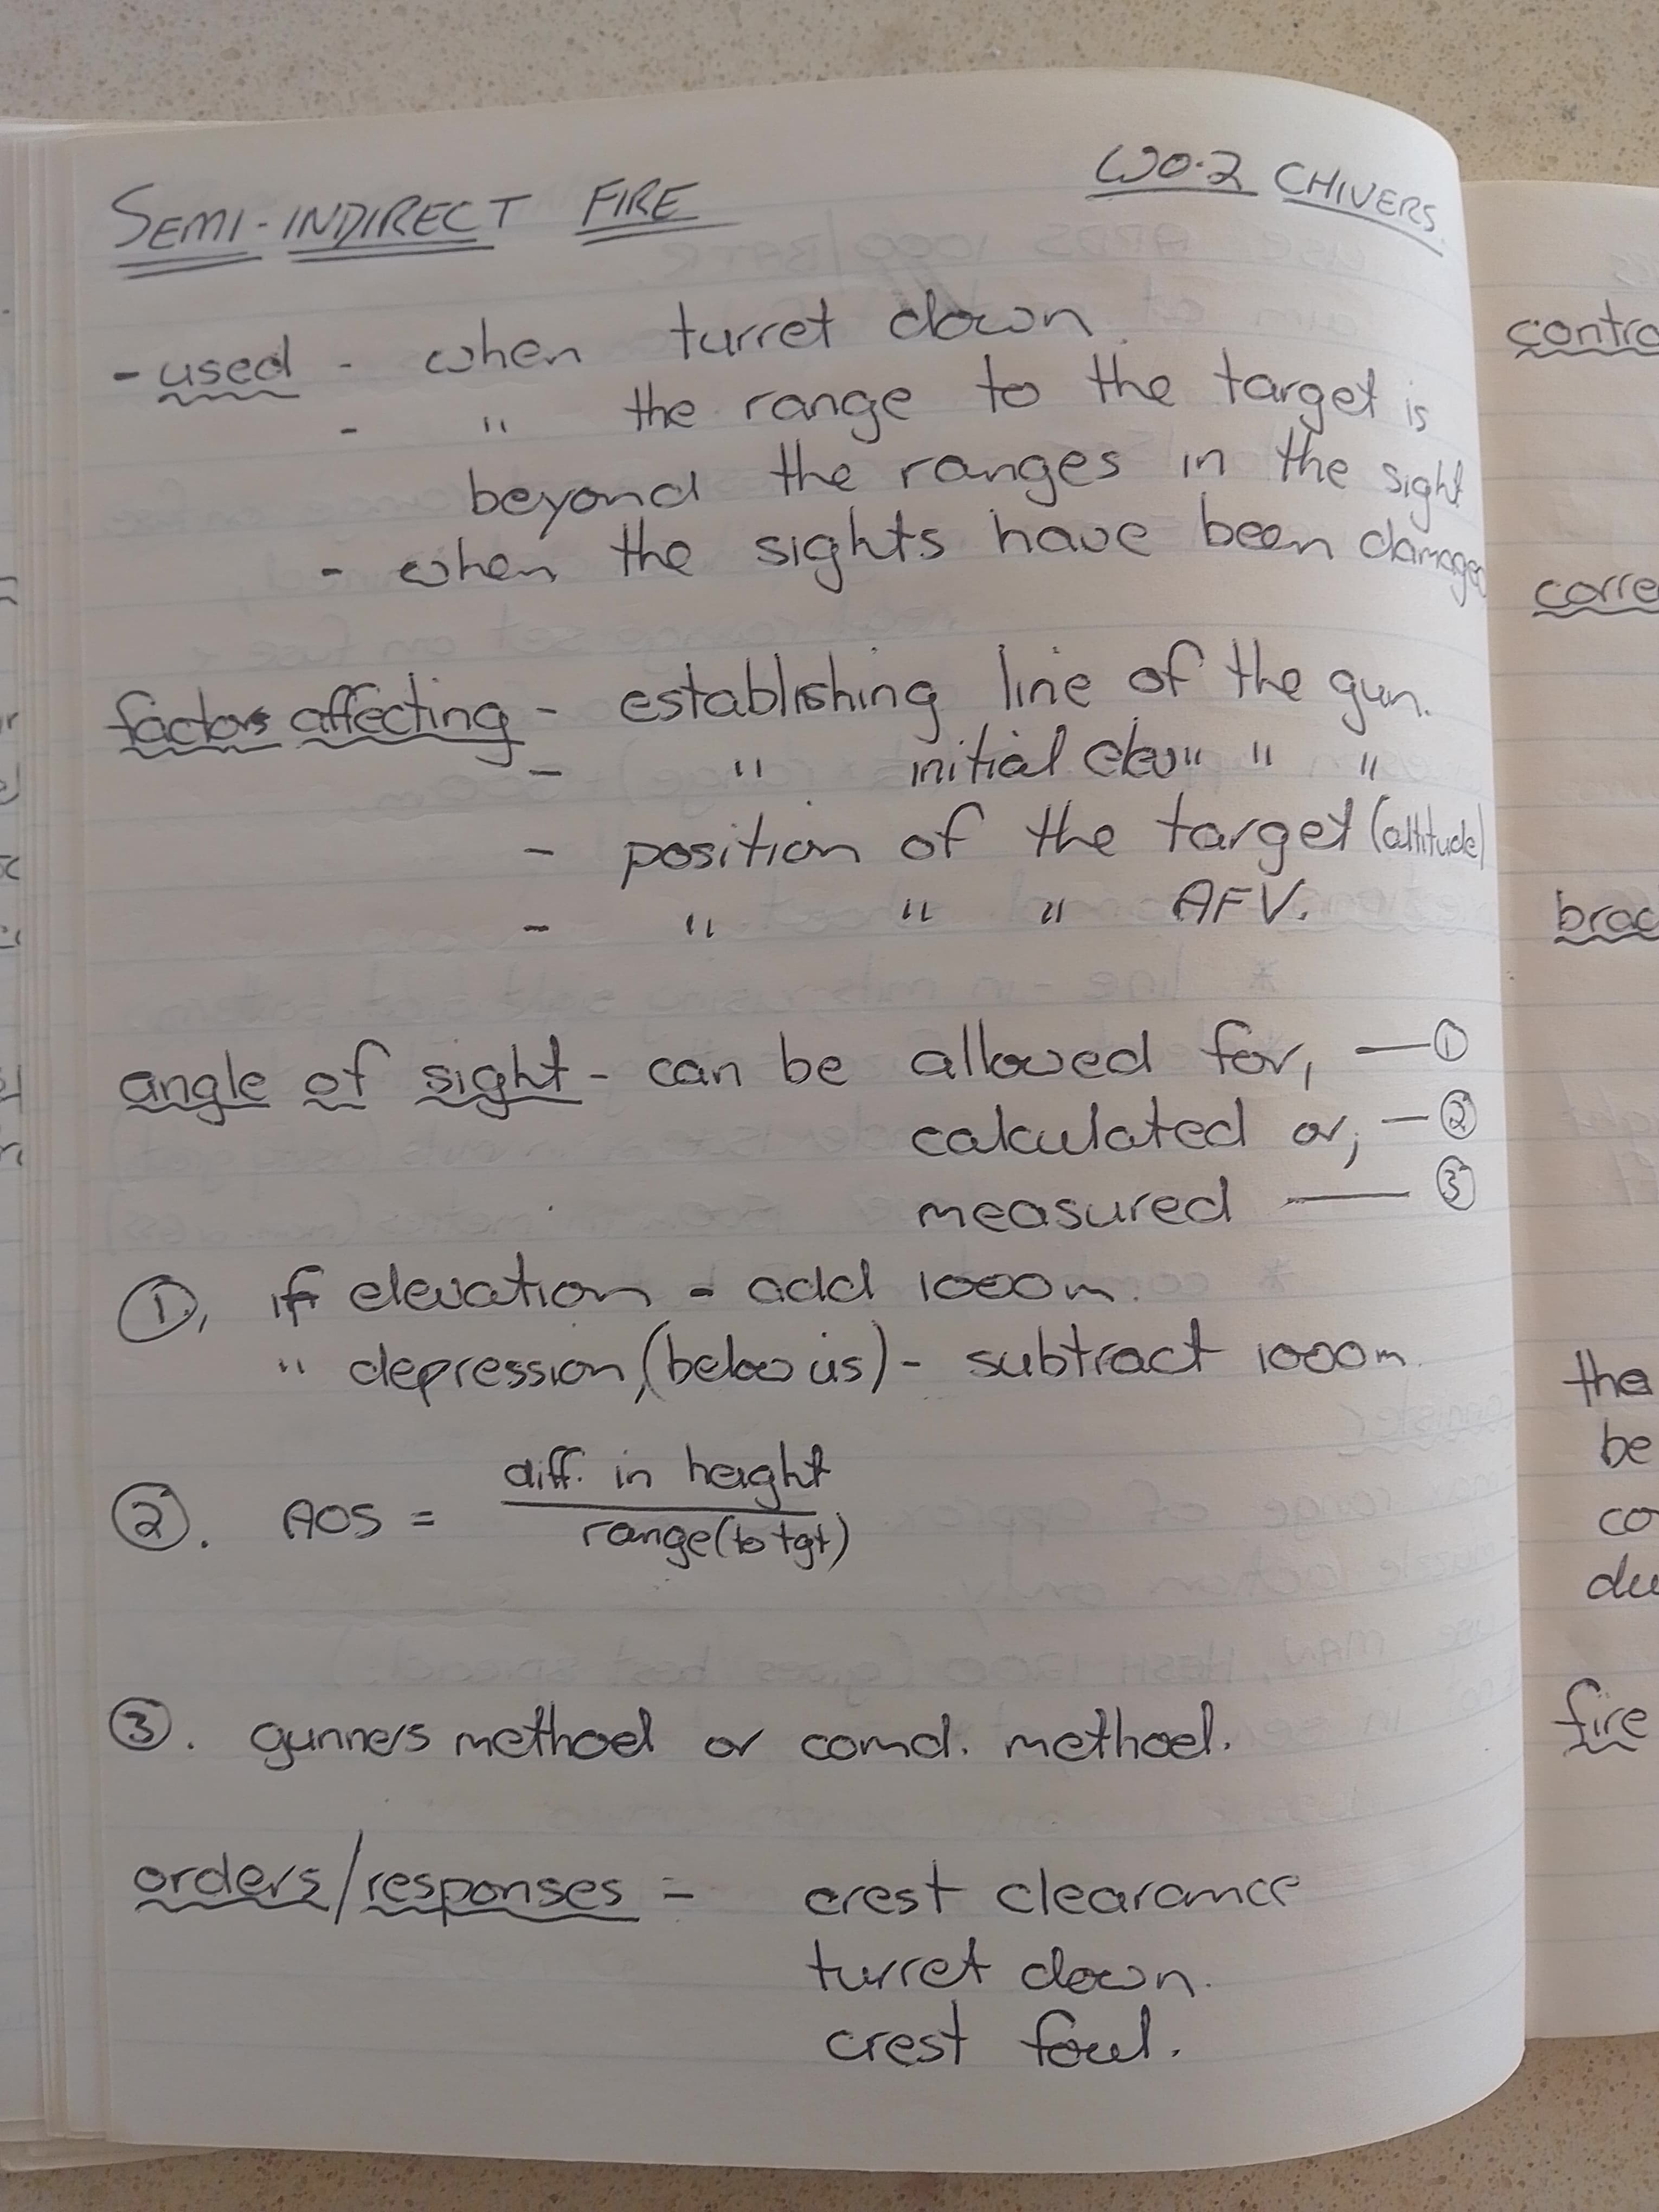 SEMI-INDIRECT FIRE WO.2 CHIVERS.
- used - when turret down.
- " the range to the target is
beyond the ranges in the sight
- when the sights have been damaged
factors affecting - establishing line of the gun.
- " initial elev" " "
- position of the target (altitude)
- " " " AFV.
angle of sight - can be allowed for, — ①
calculated or; — ②
measured — ③
①, if elevation - add 1000m.
" depression, (below us) - subtract 1000m.
②. AOS = diff. in height
range (to tgt)
③. gunners method or comd. method.
orders/responses - crest clearance
turret down.
crest foul.
the
be
fire